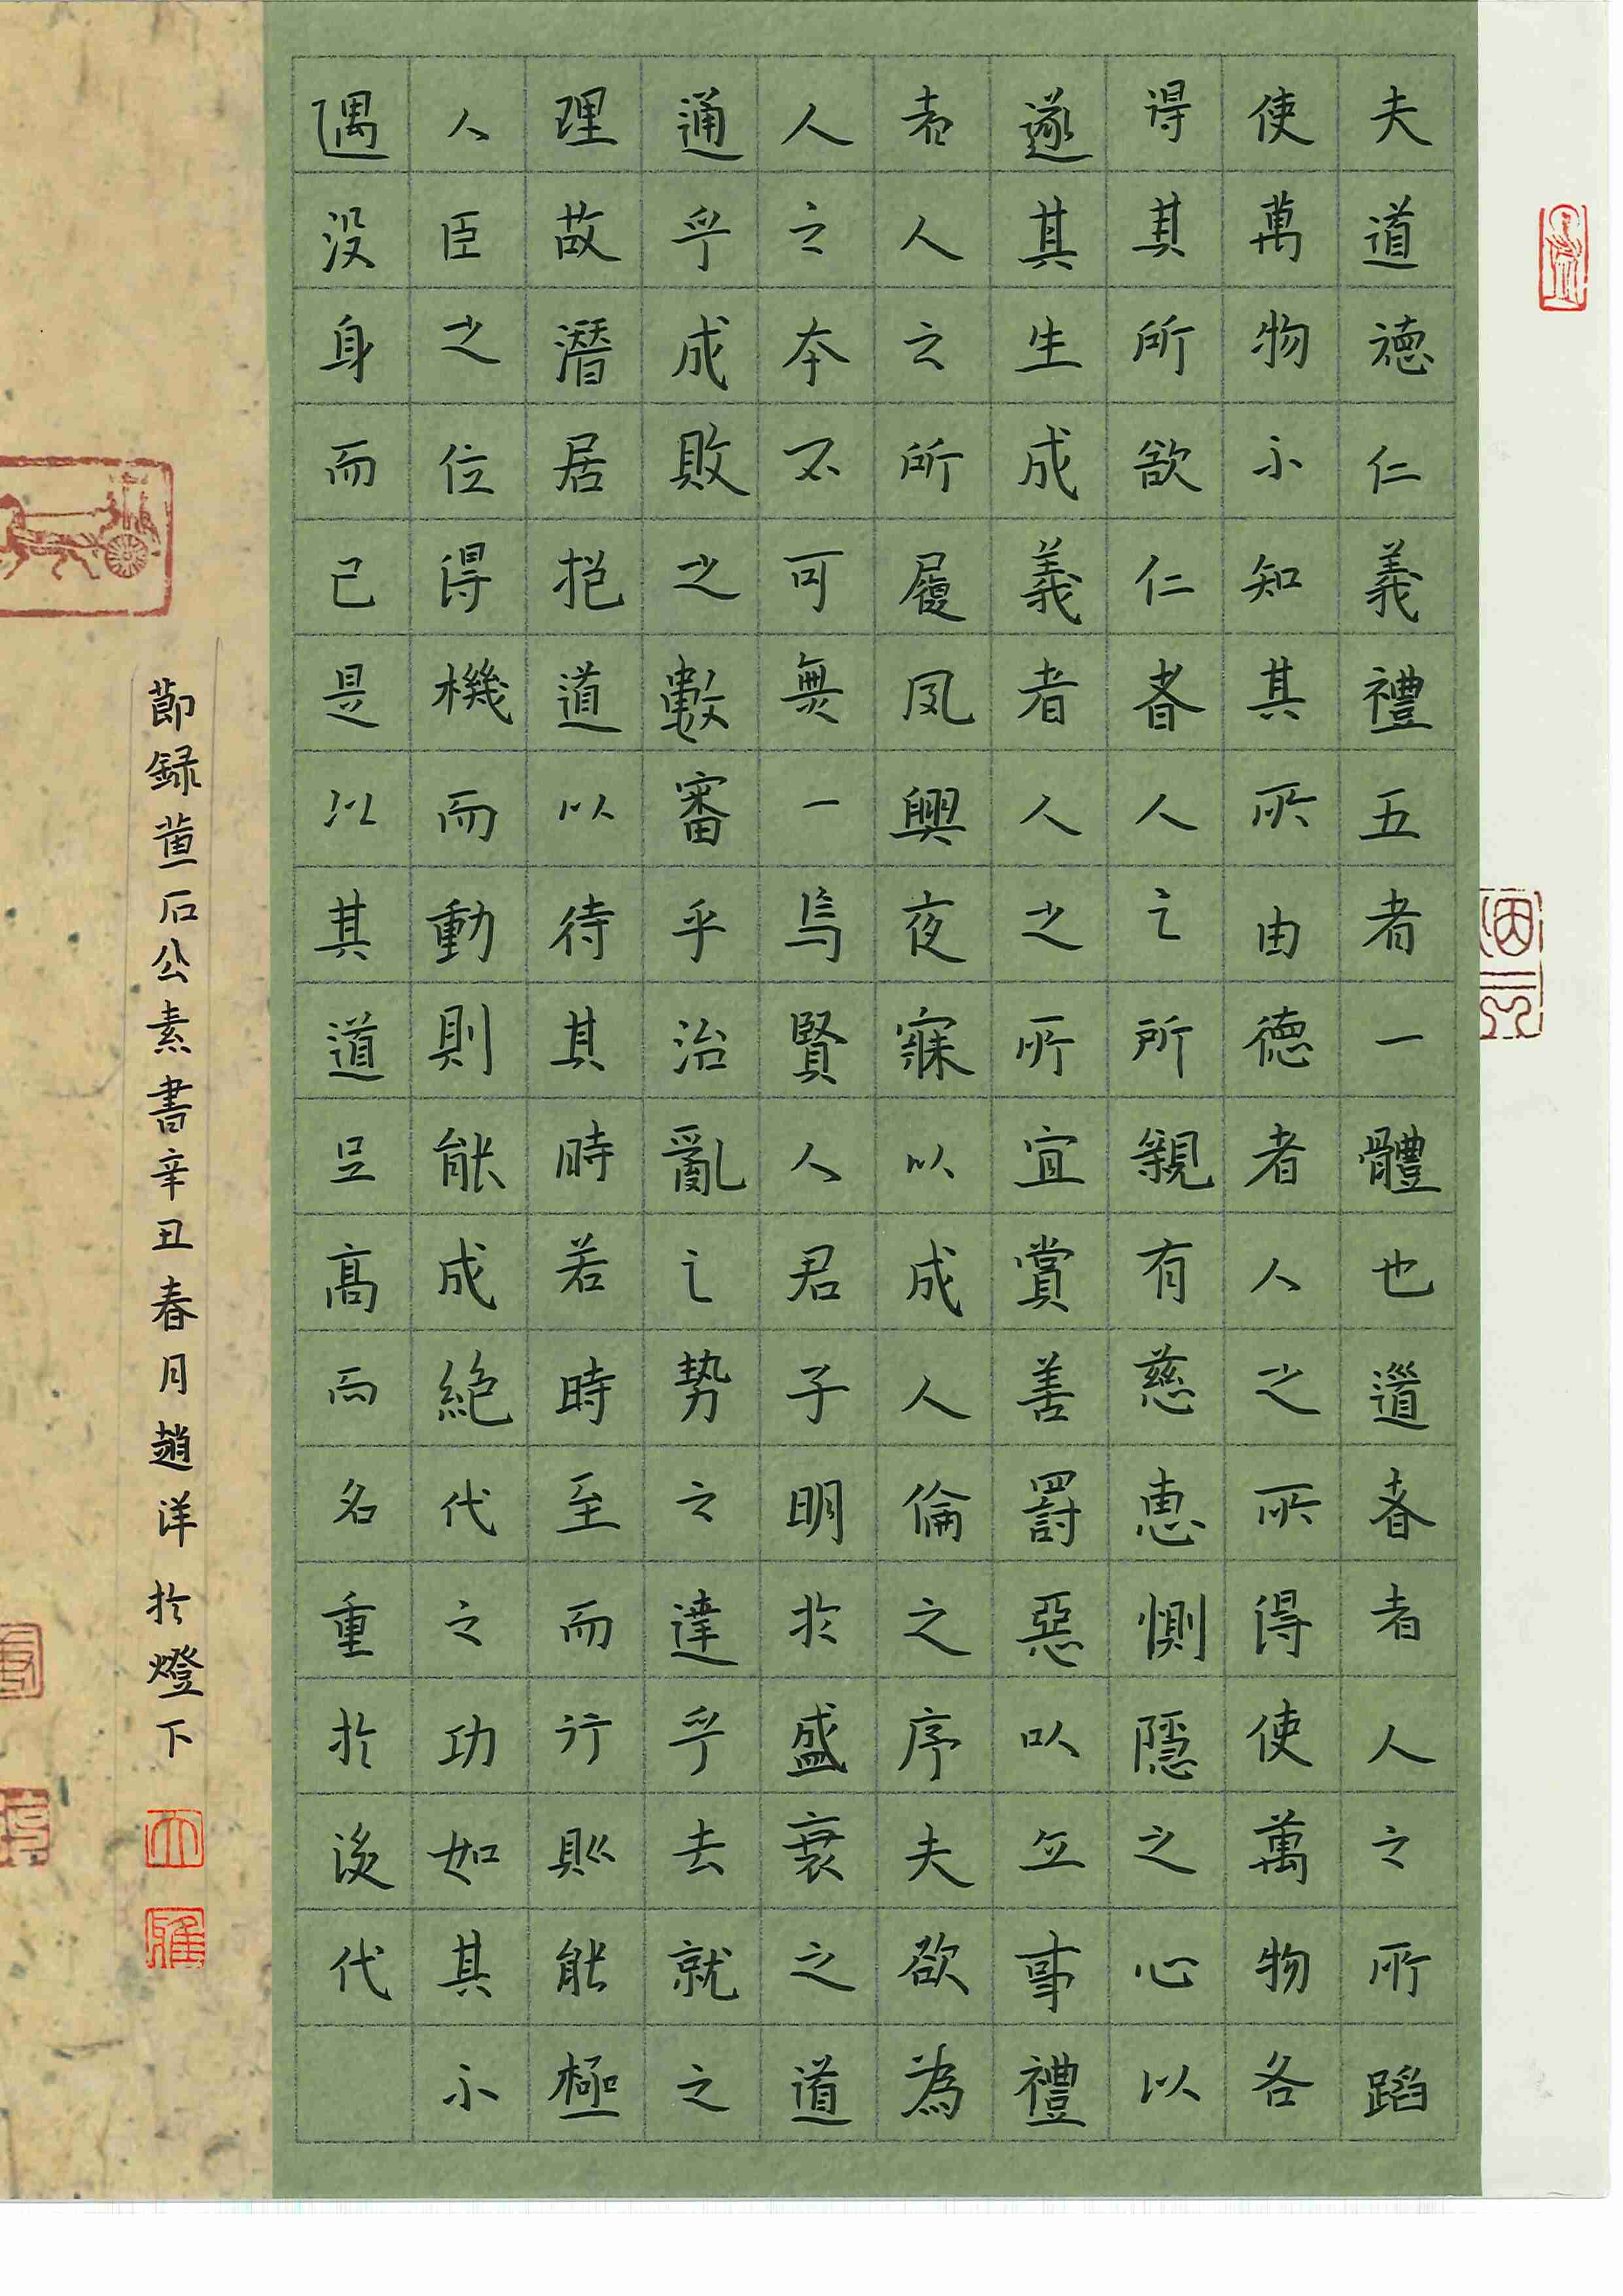 夫道德仁義禮五者一體也道者者人之所蹈
使萬物不知其所由德者人之所得使萬物各
得其所欲仁者人之所親有慈惠惻隱之心以
遂其生成義者人之所宜賞善罰惡以立事禮
者人之所履夙興夜寐以成人倫之序夫欲為
人之本不可無一焉賢人君子明於盛衰之道
通乎成敗之數審乎治亂之勢之達乎去就之
理故潛居抱道以待其時若時至而行則能極
人臣之位得機而動則能成絕代之功如其不
遇沒身而已是以其道足高而名重於後代
節録黃石公素書辛丑春月趙洋於燈下
大
雅